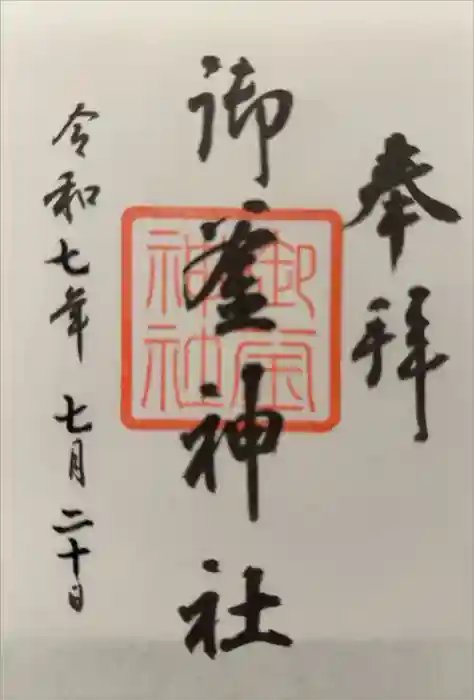 奉拝
御釜神社
御宝
神社
令和七年 七月二十日